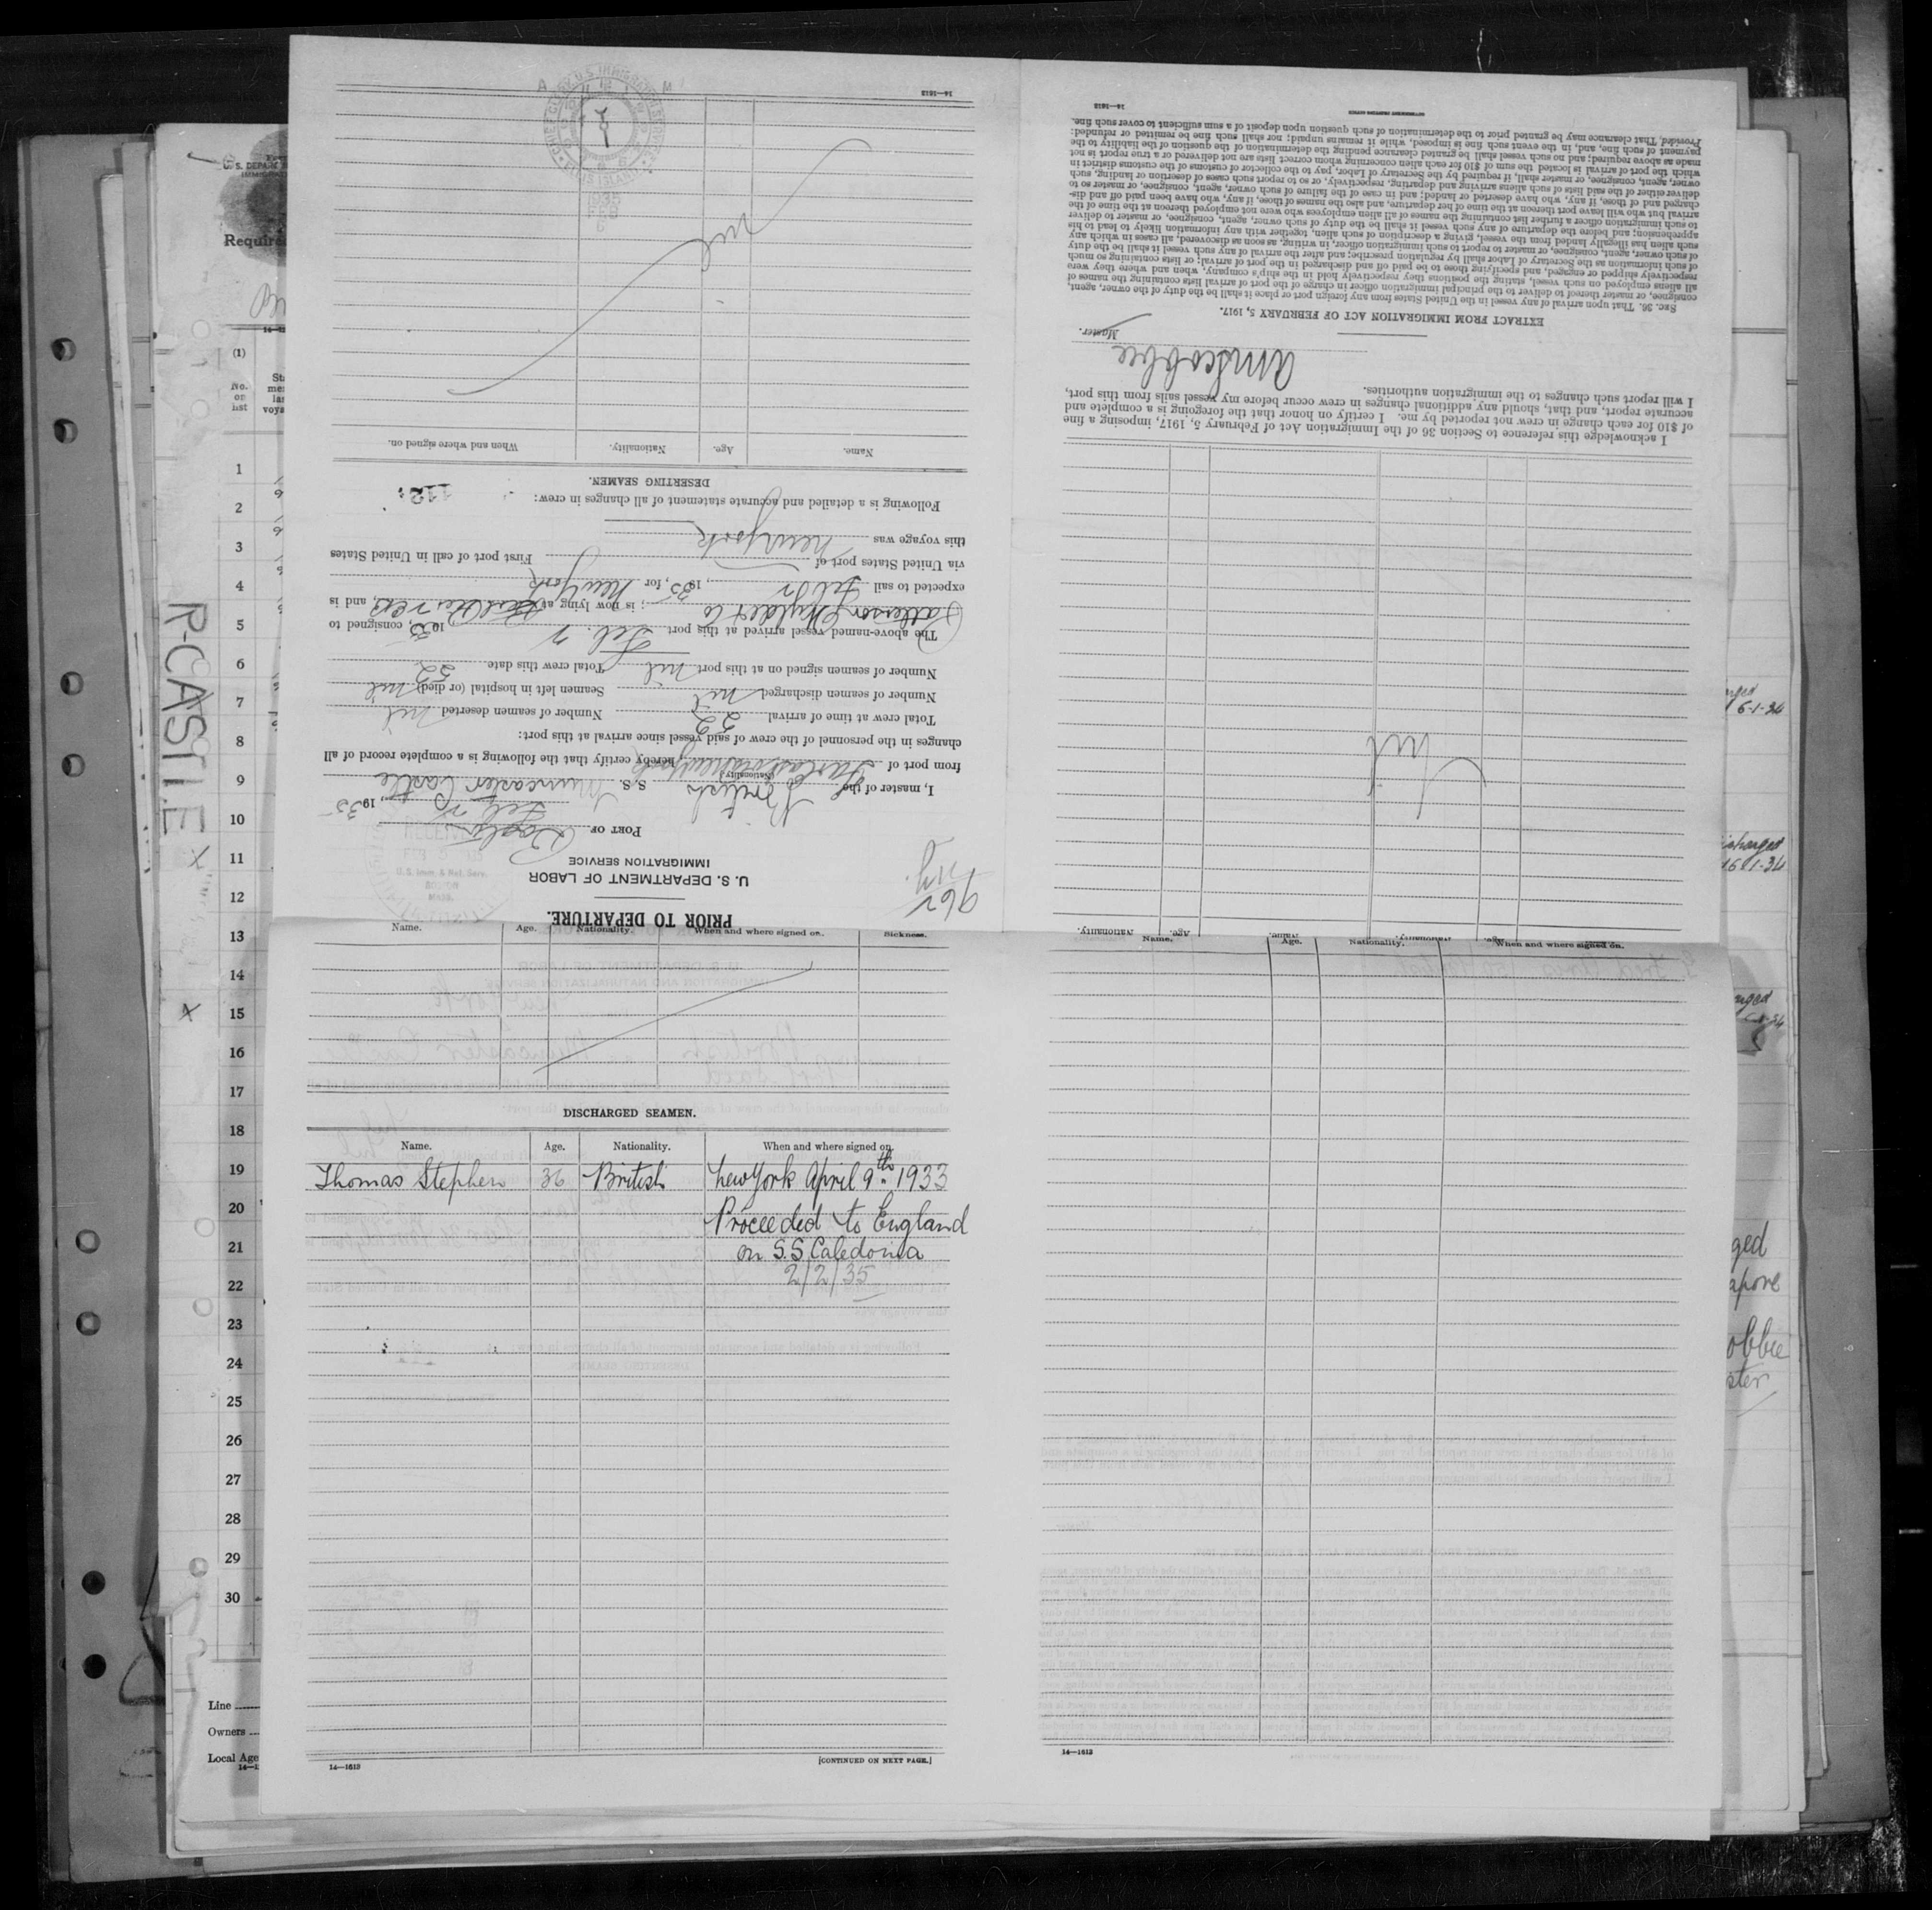 PRIOR TO DEPARTURE.
U. S. DEPARTMENT OF LABOR
IMMIGRATION SERVICE
PORT OF Boston
Feb 7, 1935
I, master of the British S. S. Muncaster Castle
(Nationality)
from port of New York hereby certify that the following is a complete record of all
changes in the personnel of the crew of said vessel since arrival at this port:
Total crew at time of arrival 52 Number of seamen deserted nil
Number of seamen discharged nil Seamen left in hospital (or died) nil
Number of seamen signed on at this port nil Total crew this date 52
The above-named vessel arrived at this port Feb. 7 1935, consigned to
Patterson Wylde & Co; is now lying at, and is
expected to sail Feb 7, 1935, for New York
via United States port of First port of call in United States
this voyage was New York
Following is a detailed and accurate statement of all changes in crew: 112.
DESERTING SEAMEN.
Name. Age. Nationality. When and where signed on.
nil
1935
FEB
14—1613
Name. Age. Nationality.
nil
I acknowledge this reference to Section 36 of the Immigration Act of February 5, 1917, imposing a fine
of $10 for each change in crew not reported by me. I certify on honor that the foregoing is a complete and
accurate report, and that, should any additional changes in crew occur before my vessel sails from this port,
I will report such changes to the immigration authorities.
Master.
EXTRACT FROM IMMIGRATION ACT OF FEBRUARY 5, 1917.
SEC. 36. That upon arrival of any vessel in the United States from any foreign port or place it shall be the duty of the owner, agent,
consignee, or master thereof to deliver to the principal immigration officer in charge of the port of arrival lists containing the names of
all aliens employed on such vessel, stating the positions they respectively hold in the ship's company, when and where they were
respectively shipped or engaged, and specifying those to be paid off and discharged in the port of arrival; or lists containing so much
of such information as the Secretary of Labor shall by regulation prescribe; and after the arrival of any such vessel it shall be the duty
of such owner, agent, consignee, or master to report to such immigration officer, in writing, as soon as discovered, all cases in which any
such alien has illegally landed from the vessel, giving a description of such alien, together with any information likely to lead to his
apprehension; and before the departure of any such vessel it shall be the duty of such owner, agent, consignee, or master to deliver
to such immigration officer a further list containing the names of all alien employees who were not employed thereon at the time of the
arrival but who will leave port thereon at the time of her departure, and also the names of those, if any, who have been paid off and dis-
charged and of those, if any, who have deserted or landed; and in case of the failure of such owner, agent, consignee, or master so to
deliver either of the said lists of such aliens arriving and departing, respectively, or so to report such cases of desertion or landing, such
owner, agent, consignee, or master shall, if required by the Secretary of Labor, pay to the collector of customs of the customs district in
which the port of arrival is located the sum of $10 for each alien concerning whom correct lists are not delivered or a true report is not
made as above required; and no such vessel shall be granted clearance pending the determination of the question of the liability to the
payment of such fine, and, in the event such fine is imposed, while it remains unpaid; nor shall such fine be remitted or refunded:
Provided, That clearance may be granted prior to the determination of such question upon deposit of a sum sufficient to cover such fine.
14—1613
Name. Age. Nationality. When and where signed on. Sickness.
DISCHARGED SEAMEN.
Name. Age. Nationality. When and where signed on.
Thomas Stephen 36 British New York April 9th. 1933
Proceeded to England
on S.S. Caledonia
2/2/35
14—1613
[CONTINUED ON NEXT PAGE.]
Name. Age. Nationality. When and where signed on.
14—1613
R-CASTLE
Required
(1)
No.
on
list
1
2
3
4
5
6
7
8
9
10
11
12
13
14
15
16
17
18
19
20
21
22
23
24
25
26
27
28
29
30
Line
Owners
Local Age